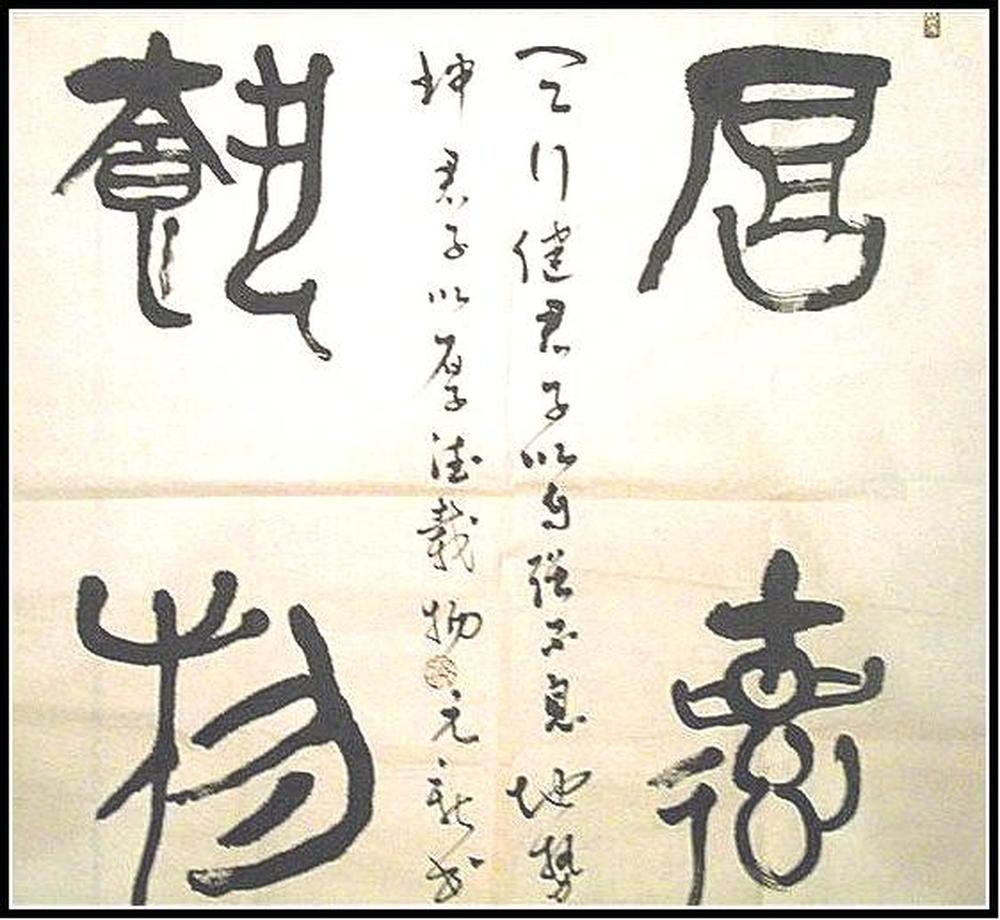 厚德
天行健君子以自强不息地勢
坤君子以厚德載物元新书
載物